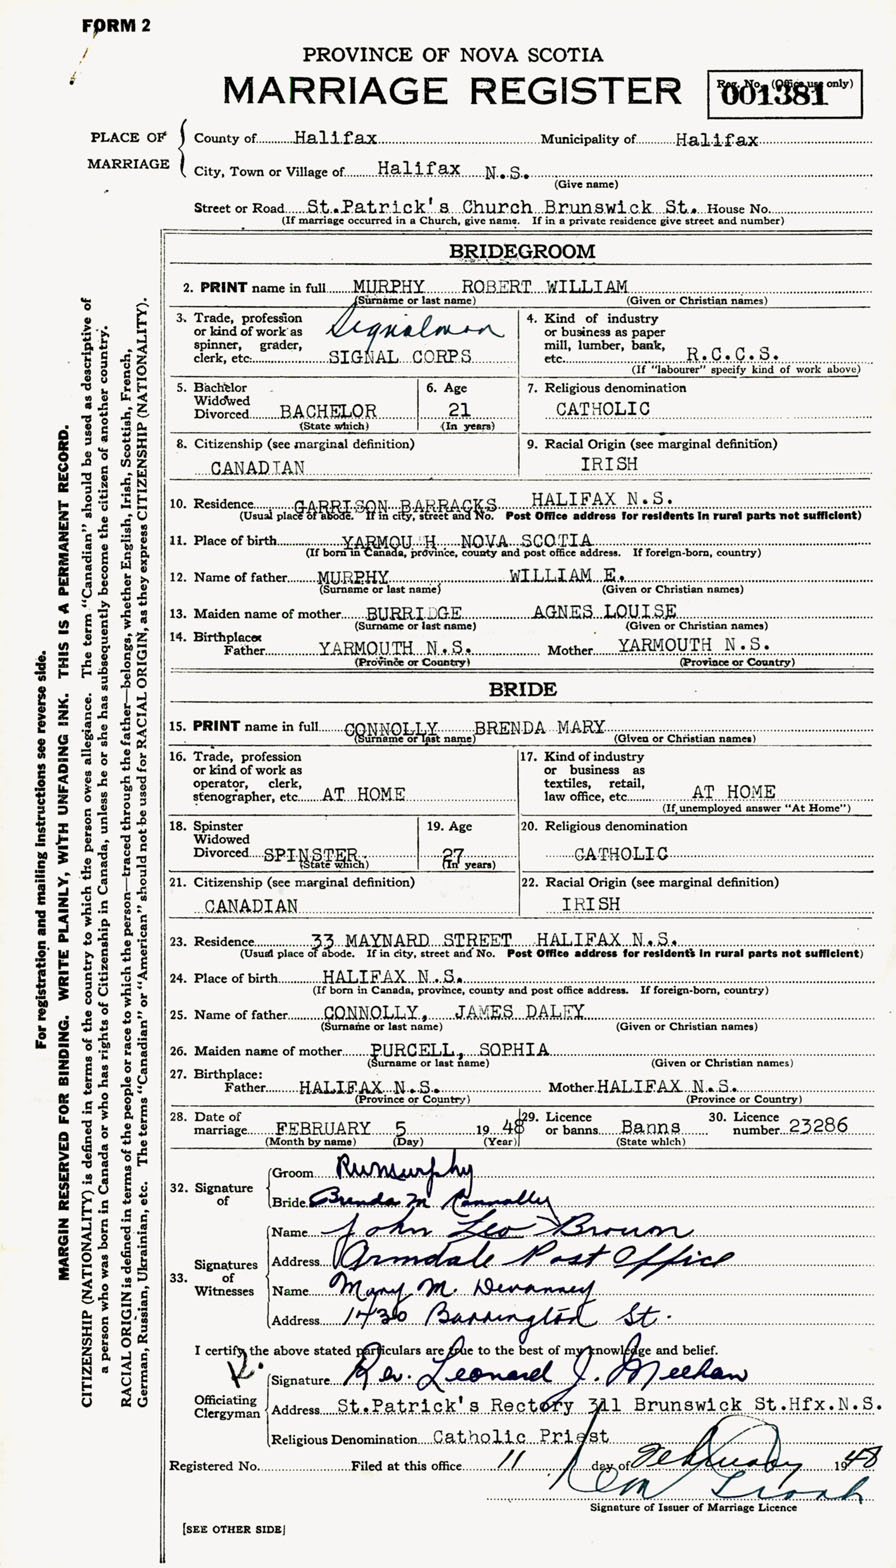 FORM 2
PROVINCE OF NOVA SCOTIA
MARRIAGE REGISTER
Reg. No. (Office use only)
001381
PLACE OF MARRIAGE
County of Halifax Municipality of Halifax
City, Town or Village of Halifax N.S.
(Give name)
Street or Road St.Patrick's Church Brunswick St. House No.
(If marriage occurred in a Church, give name. If in a private residence give street and number)
BRIDEGROOM
2. PRINT name in full MURPHY ROBERT WILLIAM
(Surname or last name) (Given or Christian names)
3. Trade, profession
or kind of work as
spinner, grader,
clerk, etc. Signalman SIGNAL CORPS
4. Kind of industry
or business as paper
mill, lumber, bank,
etc. R.C.C.S.
(If "labourer" specify kind of work above)
5. Bachelor
Widowed
Divorced BACHELOR
(State which)
6. Age
21
(In years)
7. Religious denomination
CATHOLIC
8. Citizenship (see marginal definition)
CANADIAN
9. Racial Origin (see marginal definition)
IRISH
10. Residence GARRISON BARRACKS HALIFAX N.S.
(Usual place of abode. If in city, street and No. Post Office address for residents in rural parts not sufficient)
11. Place of birth YARMOU H NOVA SCOTIA
(If born in Canada, province, county and post office address. If foreign-born, country)
12. Name of father MURPHY WILLIAM E.
(Surname or last name) (Given or Christian names)
13. Maiden name of mother BURRIDGE AGNES LOUISE
(Surname or last name) (Given or Christian names)
14. Birthplace
Father YARMOUTH N.S. Mother YARMOUTH N.S.
(Province or Country) (Province or Country)
BRIDE
15. PRINT name in full CONNOLLY BRENDA MARY
(Surname or last name) (Given or Christian names)
16. Trade, profession
or kind of work as
operator, clerk,
stenographer, etc. AT HOME
17. Kind of industry
or business as
textiles, retail,
law office, etc. AT HOME
(If unemployed answer "At Home")
18. Spinster
Widowed
Divorced SPINSTER.
(State which)
19. Age
27
(In years)
20. Religious denomination
CATHOLIC
21. Citizenship (see marginal definition)
CANADIAN
22. Racial Origin (see marginal definition)
IRISH
23. Residence 33 MAYNARD STREET HALIFAX N.S.
(Usual place of abode. If in city, street and No. Post Office address for residents in rural parts not sufficient)
24. Place of birth HALIFAX N.S.
(If born in Canada, province, county and post office address. If foreign-born, country)
25. Name of father CONNOLLY, JAMES DALEY
(Surname or last name) (Given or Christian names)
26. Maiden name of mother PURCELL, SOPHIA
(Surname or last name) (Given or Christian names)
27. Birthplace:
Father HALIFAX N.S. Mother HALIFAX N.S.
(Province or Country) (Province or Country)
28. Date of
marriage FEBRUARY 5 1948
(Month by name) (Day) (Year)
29. Licence
or banns Banns
(State which)
30. Licence
number 23286
32. Signature of
Groom RWMurphy
Bride Brenda M Connolly
33. Signatures of Witnesses
Name John Leo Brown
Address Armdale Post Office
Name Mary M. Devanney
Address 1430 Barrington St.
I certify the above stated particulars are true to the best of my knowledge and belief.
Officiating Clergyman
Signature Rev. Leonard J. Meehan
Address St.Patrick's Rectory 311 Brunswick St.Hfx.N.S.
Religious Denomination Catholic Priest
Registered No. Filed at this office 11 day of February 1948
Signature of Issuer of Marriage Licence
[SEE OTHER SIDE]
For registration and mailing instructions see reverse side.
MARGIN RESERVED FOR BINDING. WRITE PLAINLY, WITH UNFADING INK. THIS IS A PERMANENT RECORD.
CITIZENSHIP (NATIONALITY) is defined in terms of the country to which the person owes allegiance. The term "Canadian" should be used as descriptive of
a person who was born in Canada or who has rights of Citizenship in Canada, unless he or she has subsequently become the citizen of another country.
RACIAL ORIGIN is defined in terms of the people or race to which the person—traced through the father—belongs, whether English, Irish, Scottish, French,
German, Russian, Ukrainian, etc. The terms "Canadian" or "American" should not be used for RACIAL ORIGIN, as they express CITIZENSHIP (NATIONALITY).